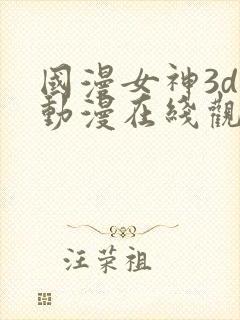 國漫女神3d
動漫在綫觀
汪荣祖